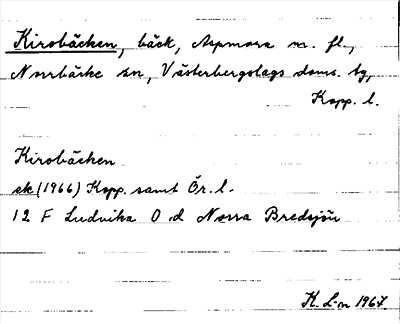 Kirobäcken, bäck, Aspmora m. fl.,
Norrbärke sn, Västerbergslags doms. tg,
Kopp. l.
Kirobäcken
ek (1966) Kopp. samt Ör. l.
12 F Ludvika O d Norra Bredsjön
K. L-n 1967.